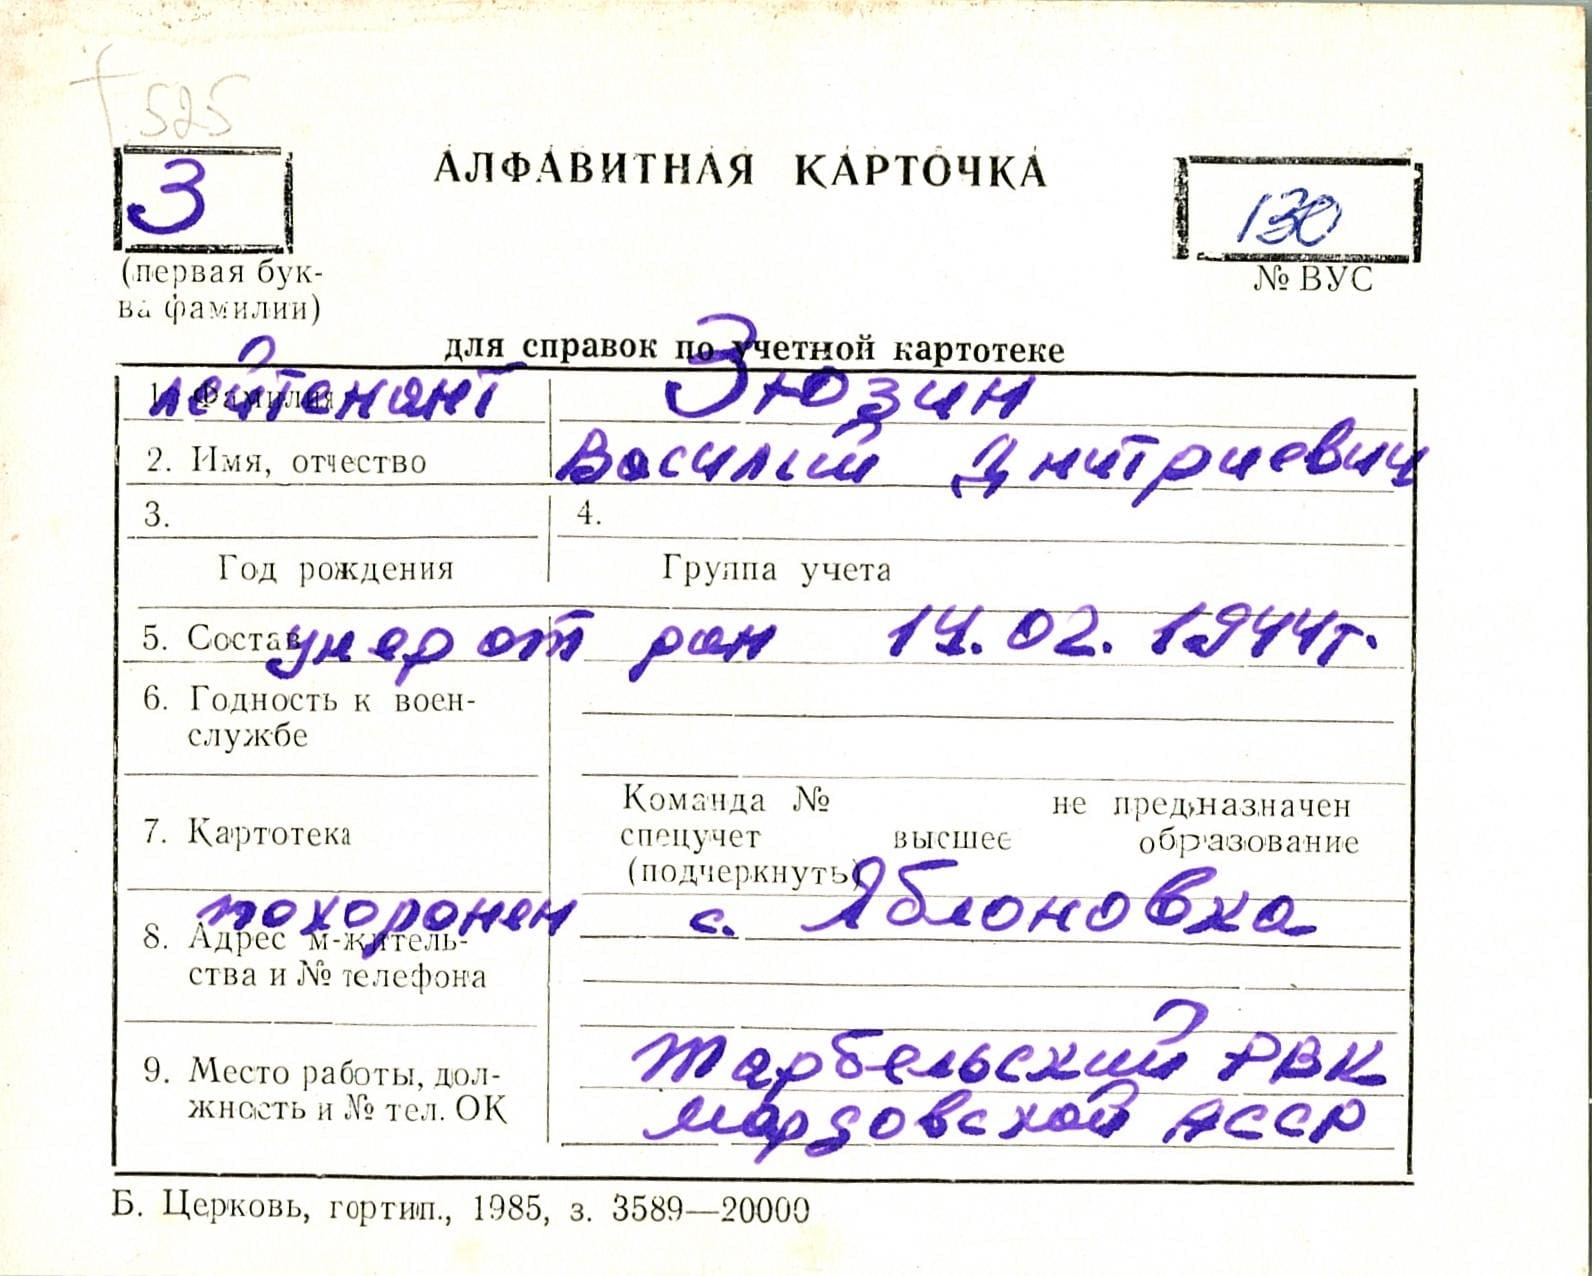 525
З
АЛФАВИТНАЯ КАРТОЧКА
130
(первая бук-
ва фамилии)
№ ВУС
для справок по учетной картотеке
1. Фамилия
лейтенант Зюзин
2. Имя, отчество Василий Дмитриевич
3. 4.
Год рождения Группа учета
5. Состав умер от ран 14.02.1944г.
6. Годность к воен-
службе
7. Картотека
Команда № не предназначен
спецучет высшее образование
(подчеркнуть)
похоронен с. Яблоновка
8. Адрес м-житель-
ства и № телефона
9. Место работы, дол-
жность и № тел. ОК
Тарбельский РВК
Мордовской АССР
Б. Церковь, гортип., 1985, з. 3589—20000